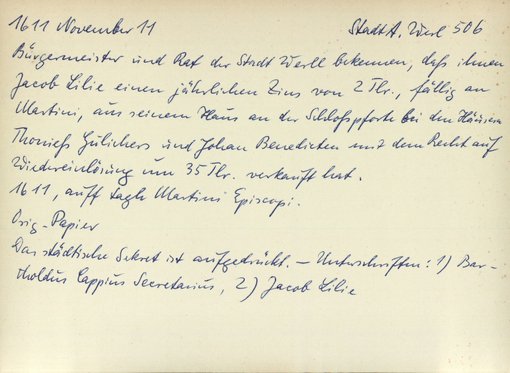 1611 November 11 StadtA. Werl 506
Bürgermeister und Rat der Stadt Werll bekennen, daß ihnen
Jacob Lilie einen jährlichen Zins von 2 Tlr., fällig an
Martini, aus seinem Haus an der Schloßpforte bei den Häusern
Thonieß Gülichers und Johan Benedicten mit dem Recht auf
Wiedereinlösung um 35 Tlr. verkauft hat.
1611, auff tagh Martini Episcopi.
Orig.-Papier
Das städtische Sekret ist aufgedrückt. – Unterschriften: 1) Bar-
tholdus Cappius Secretarius, 2) Jacob Lilie